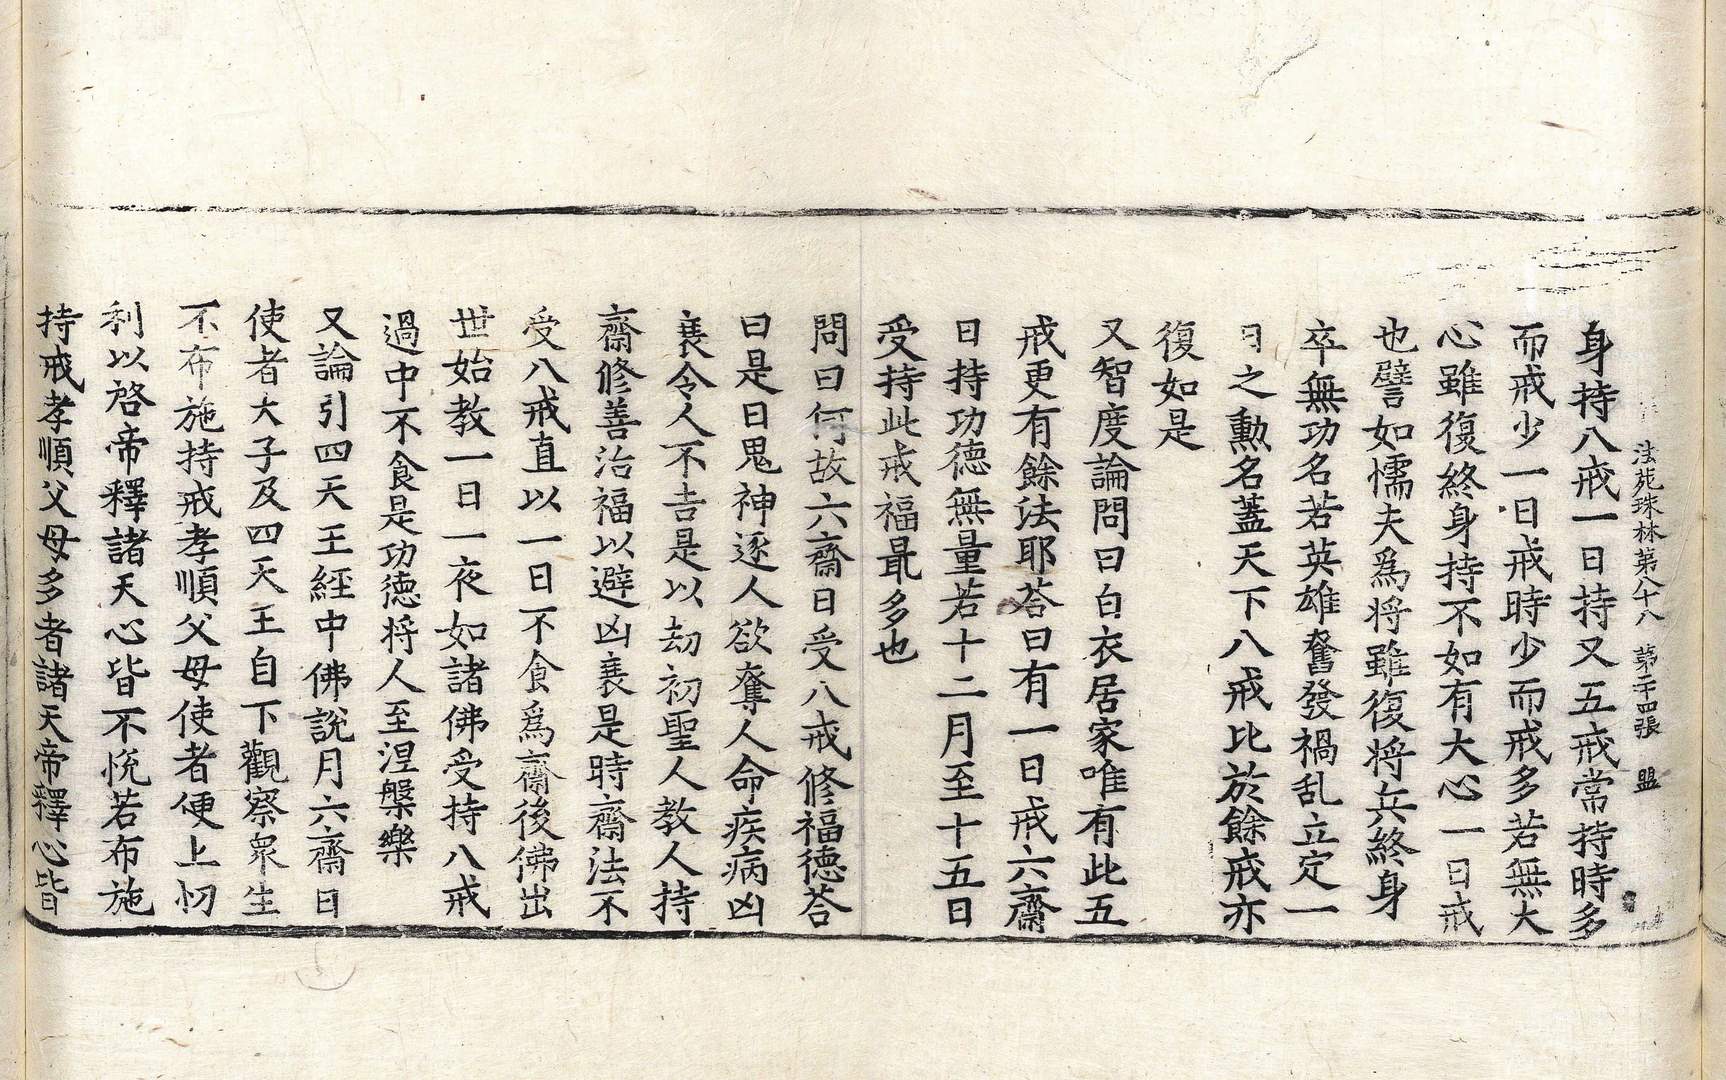 法苑珠林第八十八 第二十四張 盟
身持八戒一日持又五戒常持時多
而戒少一日戒時少而戒多若無大
心雖復終身持不如有大心一日戒
也譬如懦夫爲將雖復將兵終身
卒無功名若英雄奮發禍乱立定一
日之勲名蓋天下八戒比於餘戒亦
復如是
又智度論問曰白衣居家唯有此五
戒更有餘法耶荅曰有一日戒六齋
日持功德無量若十二月至十五日
受持此戒福最多也
問曰何故六齋日受八戒修福德荅
曰是日鬼神逐人欲奪人命疾病凶
衰令人不吉是以劫初聖人教人持
齋修善治福以避凶衰是時齋法不
受八戒直以一日不食爲齋後佛出
世始教一日一夜如諸佛受持八戒
過中不食是功德将人至涅槃樂
又論引四天王經中佛說月六齋日
使者大子及四天王自下觀察衆生
不布施持戒孝順父母使者便上忉
利以啓帝釋諸天心皆不悅若布施
持戒孝順父母多者諸天帝釋心皆